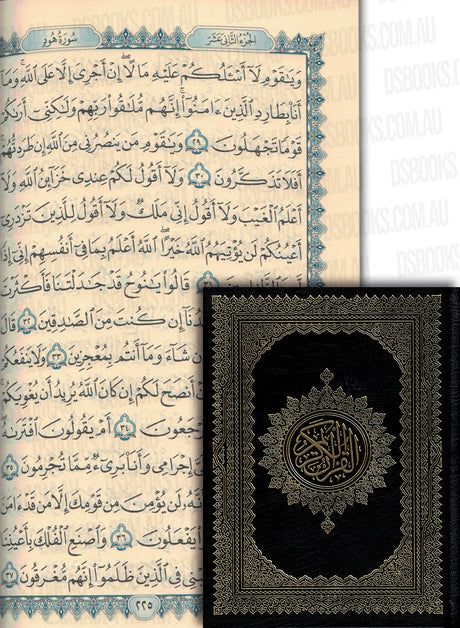 الجزء الثاني عشر
سورة هود
وَيَٰقَوْمِ لَآ أَسْـَٔلُكُمْ عَلَيْهِ مَالًا ۖ إِنْ أَجْرِىَ إِلَّا عَلَى ٱللَّهِ ۚ وَمَآ
أَنَا۠ بِطَارِدِ ٱلَّذِينَ ءَامَنُوٓا۟ ۚ إِنَّهُم مُّلَٰقُوا۟ رَبِّهِمْ وَلَٰكِنِّىٓ أَرَىٰكُمْ
قَوْمًا تَجْهَلُونَ ٢٩ وَيَٰقَوْمِ مَن يَنصُرُنِى مِنَ ٱللَّهِ إِن طَرَدتُّهُمْ
أَفَلَا تَذَكَّرُونَ ٣٠ وَلَآ أَقُولُ لَكُمْ عِندِى خَزَآئِنُ ٱللَّهِ وَلَآ
أَعْلَمُ ٱلْغَيْبَ وَلَآ أَقُولُ إِنِّى مَلَكٌ وَلَآ أَقُولُ لِلَّذِينَ تَزْدَرِىٓ
أَعْيُنُكُمْ لَن يُؤْتِيَهُمُ ٱللَّهُ خَيْرًا ۖ ٱللَّهُ أَعْلَمُ بِمَا فِىٓ أَنفُسِهِمْ ۖ إِنِّىٓ إِذًا
قَالُوا۟ يَٰنُوحُ قَدْ جَٰدَلْتَنَا فَأَكْثَرْتَ
إِن كُنتَ مِنَ ٱلصَّٰدِقِينَ ٣٢ قَالَ
شَآءَ وَمَآ أَنتُم بِمُعْجِزِينَ ٣٣ وَلَا يَنفَعُكُمْ
أَنصَحَ لَكُمْ إِن كَانَ ٱللَّهُ يُرِيدُ أَن يُغْوِيَكُمْ
تُرْجَعُونَ ٣٤ أَمْ يَقُولُونَ ٱفْتَرَىٰهُ
إِجْرَامِى وَأَنَا۠ بَرِىٓءٌ مِّمَّا تُجْرِمُونَ ٣٥
لَن يُؤْمِنَ مِن قَوْمِكَ إِلَّا مَن قَدْ ءَامَنَ
يَفْعَلُونَ ٣٦ وَٱصْنَعِ ٱلْفُلْكَ بِأَعْيُنِنَا
فِى ٱلَّذِينَ ظَلَمُوٓا۟ ۚ إِنَّهُم مُّغْرَقُونَ ٣٧
٢٢٥
القرآن الكريم
DSBOOKS.COM.AU
DSBOOKS.COM.AU
DSBOOKS.COM.AU
DSBOOKS.COM.AU